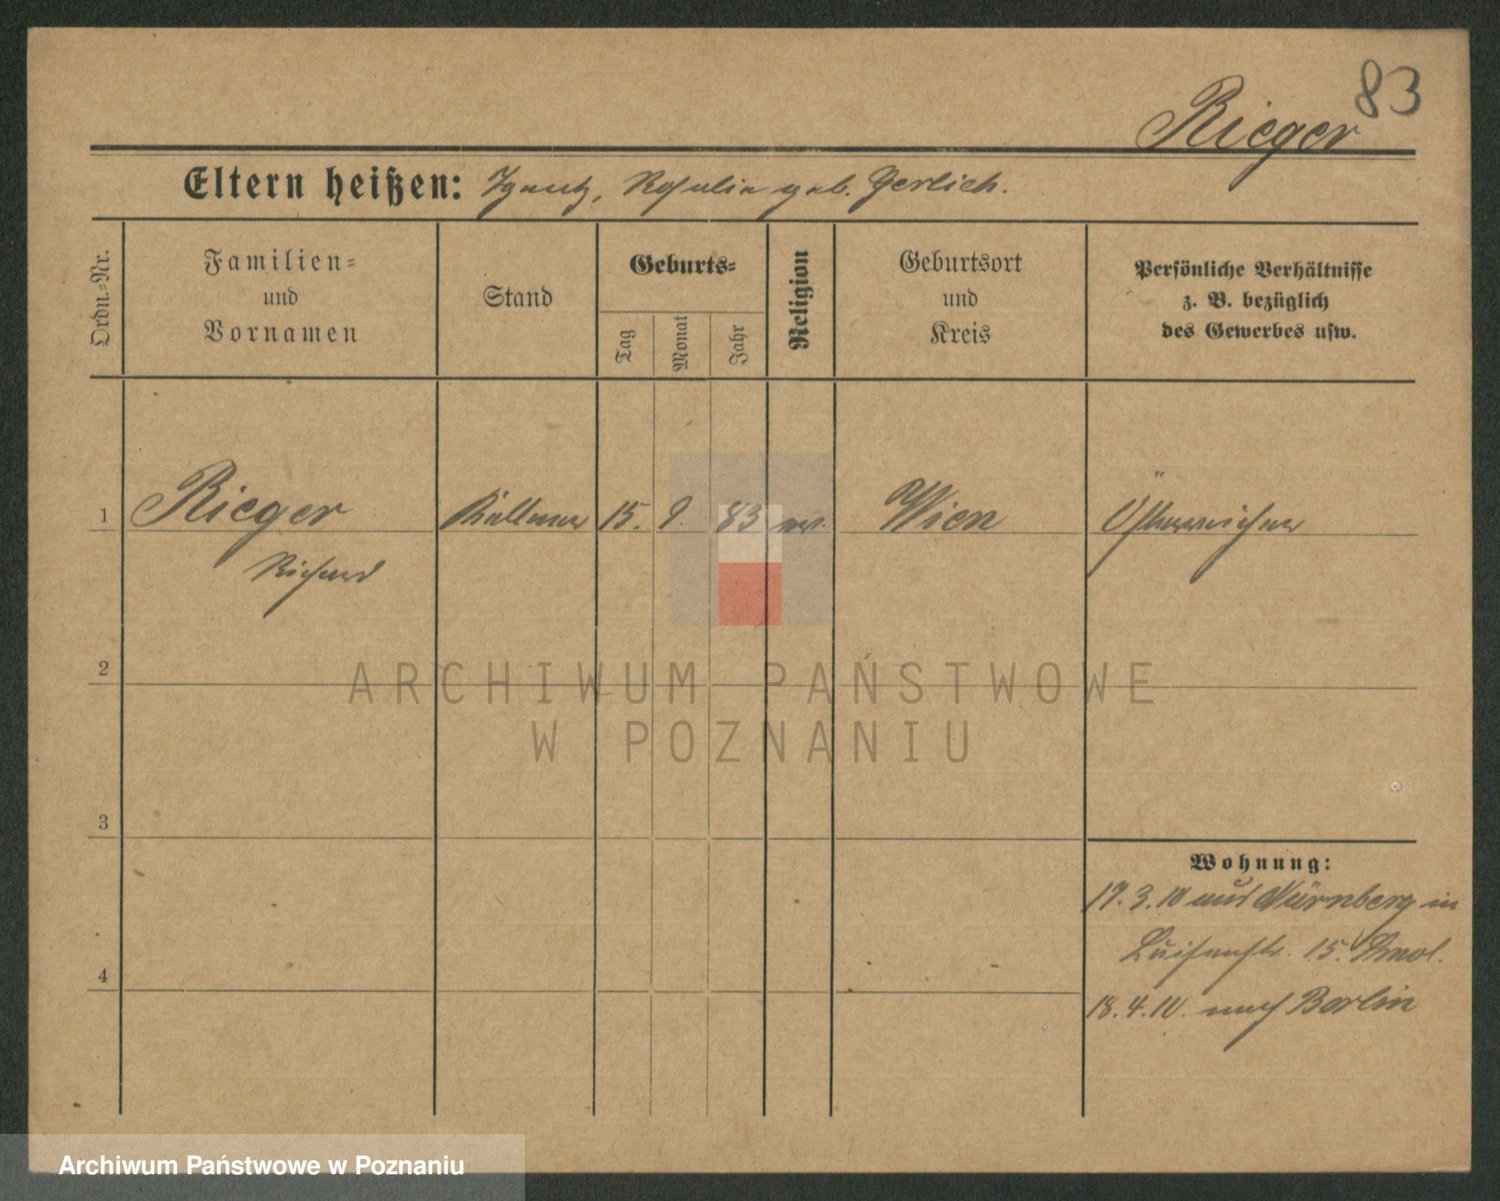 83
Rieger
Eltern heißen: Ignatz, Rosalia geb. Gerlich.
Ordn.-Nr.
Familien-
und
Vornamen
Stand
Geburts-
Tag
Monat
Jahr
Religion
Geburtsort
und
Kreis
Persönliche Verhältnisse
z. B. bezüglich
des Gewerbes usw.
1 Rieger Kellner 15. 9. 83 Wien Österreicher
Richard
2
3
4
Wohnung:
17. 3. 10 aus Nürnberg in
Luisenstr. 15.
18. 4. 10. nach Berlin
ARCHIWUM PAŃSTWOWE
W POZNANIU
Archiwum Państwowe w Poznaniu